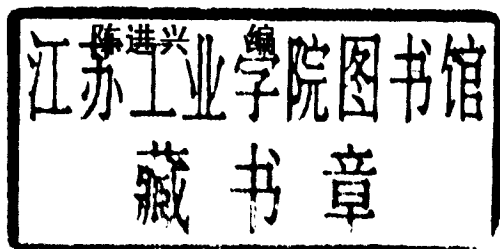 陈进兴 编
江苏工业学院图书馆
藏书章